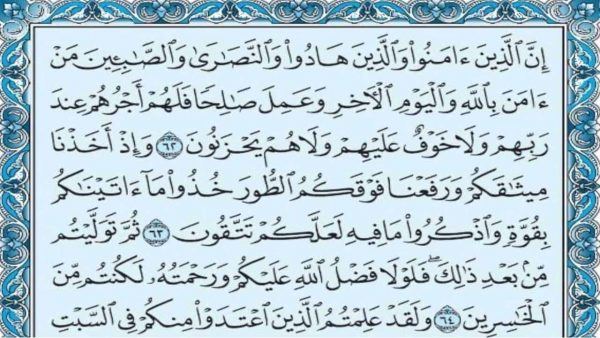 إِنَّ ٱلَّذِينَ ءَامَنُوا۟ وَٱلَّذِينَ هَادُوا۟ وَٱلنَّصَٰرَىٰ وَٱلصَّٰبِـِٔينَ مَنْ
ءَامَنَ بِٱللَّهِ وَٱلْيَوْمِ ٱلْـَٔاخِرِ وَعَمِلَ صَٰلِحًا فَلَهُمْ أَجْرُهُمْ عِندَ
رَبِّهِمْ وَلَا خَوْفٌ عَلَيْهِمْ وَلَا هُمْ يَحْزَنُونَ ٦٢ وَإِذْ أَخَذْنَا
مِيثَٰقَكُمْ وَرَفَعْنَا فَوْقَكُمُ ٱلطُّورَ خُذُوا۟ مَآ ءَاتَيْنَٰكُم
بِقُوَّةٍ وَٱذْكُرُوا۟ مَا فِيهِ لَعَلَّكُمْ تَتَّقُونَ ٦٣ ثُمَّ تَوَلَّيْتُم
مِّنۢ بَعْدِ ذَٰلِكَ ۖ فَلَوْلَا فَضْلُ ٱللَّهِ عَلَيْكُمْ وَرَحْمَتُهُۥ لَكُنتُم مِّنَ
ٱلْخَٰسِرِينَ ٦٤ وَلَقَدْ عَلِمْتُمُ ٱلَّذِينَ ٱعْتَدَوْا۟ مِنكُمْ فِى ٱلسَّبْتِ